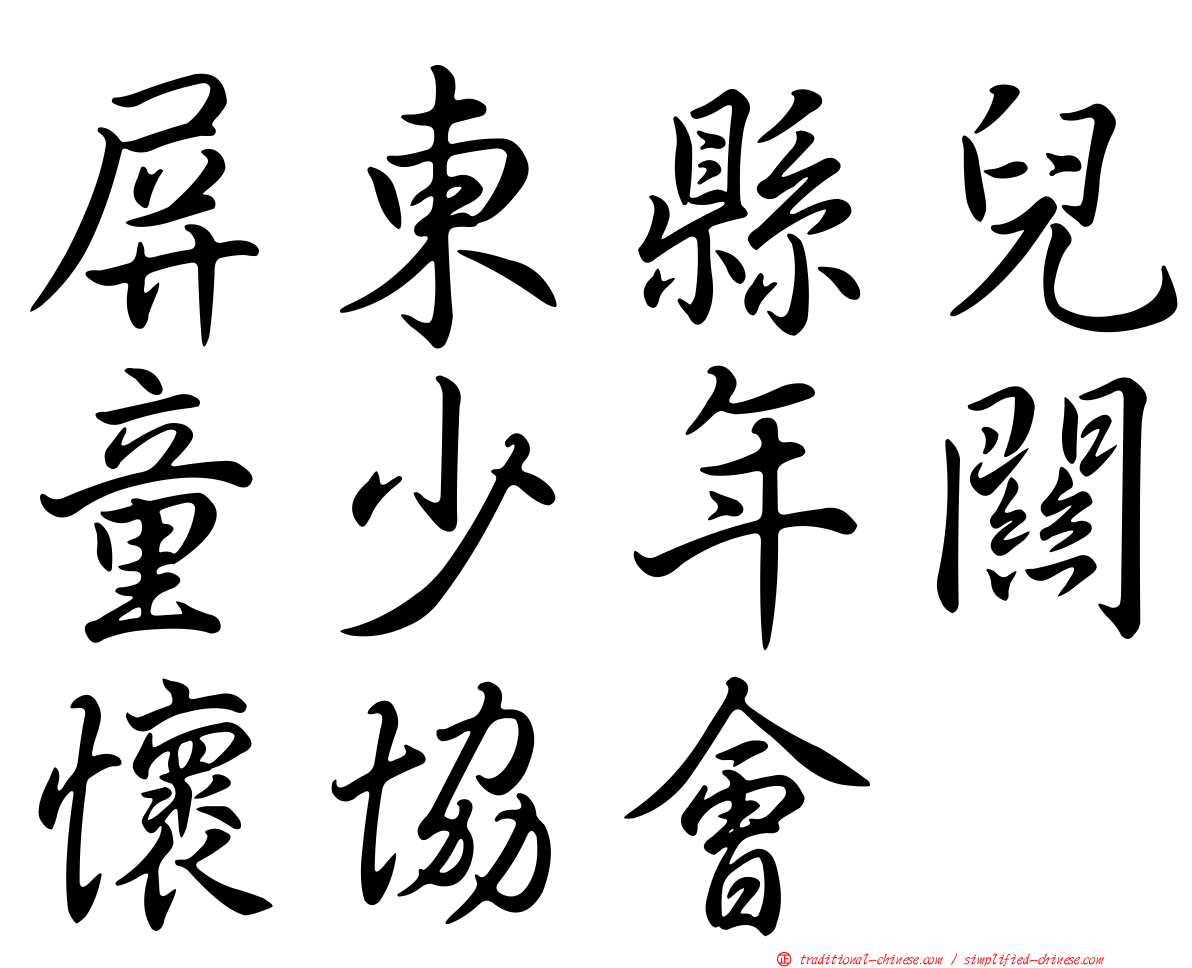 屏東縣兒
童少年關
懷協會
正 traditional-chinese.com / simplified-chinese.com